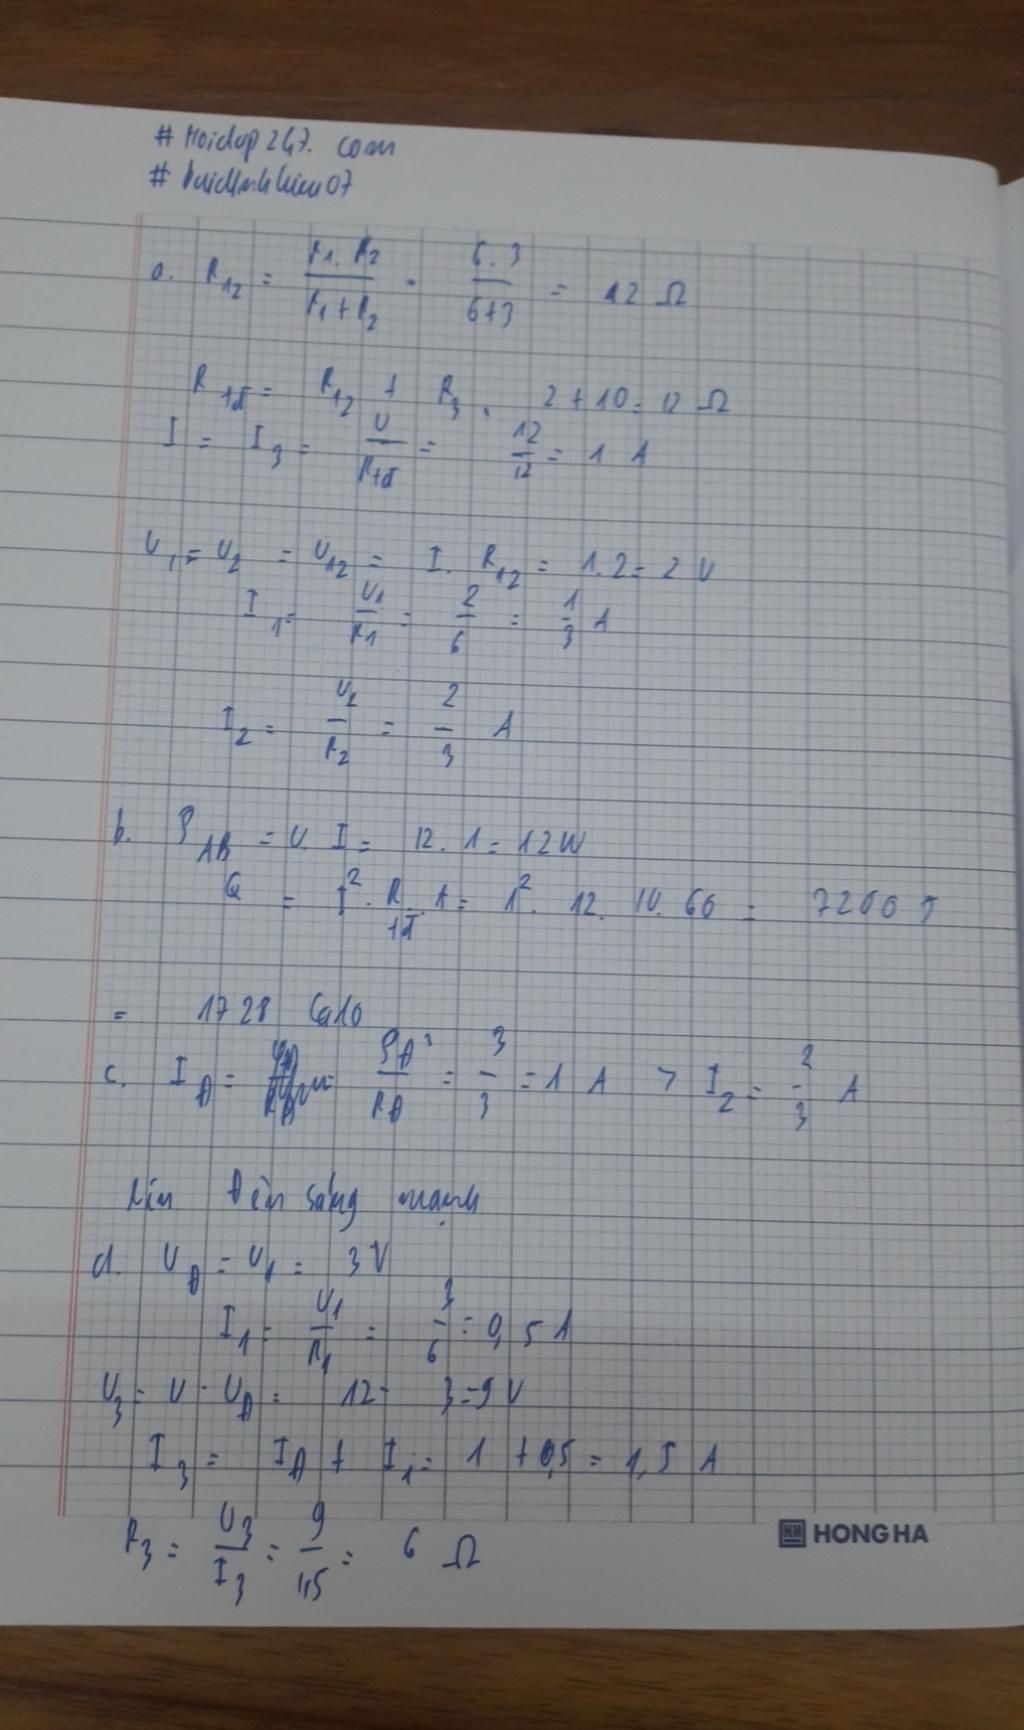 # Hoidap247. com
a. R12 = R1. R2 / R1 + R2 = 6.3 / 6+3 = 12 Ω
Rtđ = R12 + R3 = 2 + 10 = 12 Ω
I = I3 = U / Rtđ = 12 / 12 = 1 A
U1 = U2 = U12 = I. R12 = 1.2 = 2 V
I1 = U1 / R1 = 2 / 6 = 1 / 3 A
I2 = U2 / R2 = 2 / 3 A
b. PAB = U. I = 12. 1 = 12W
Q = I². Rtđ. t = 1². 12. 10. 60 = 7200 J
= 1728 Calo
c. IĐ = PĐ / RĐ = 3 / 3 = 1 A > I2 = 2 / 3 A
Đèn sáng mạnh
d. UĐ = U1 = 3V
I1 = U1 / R1 = 3 / 6 = 0,5 A
U3 = U - UĐ = 12 - 3 = 9 V
I3 = IĐ + I1 = 1 + 0,5 = 1,5 A
R3 = U3 / I3 = 9 / 1,5 = 6 Ω
HONG HA